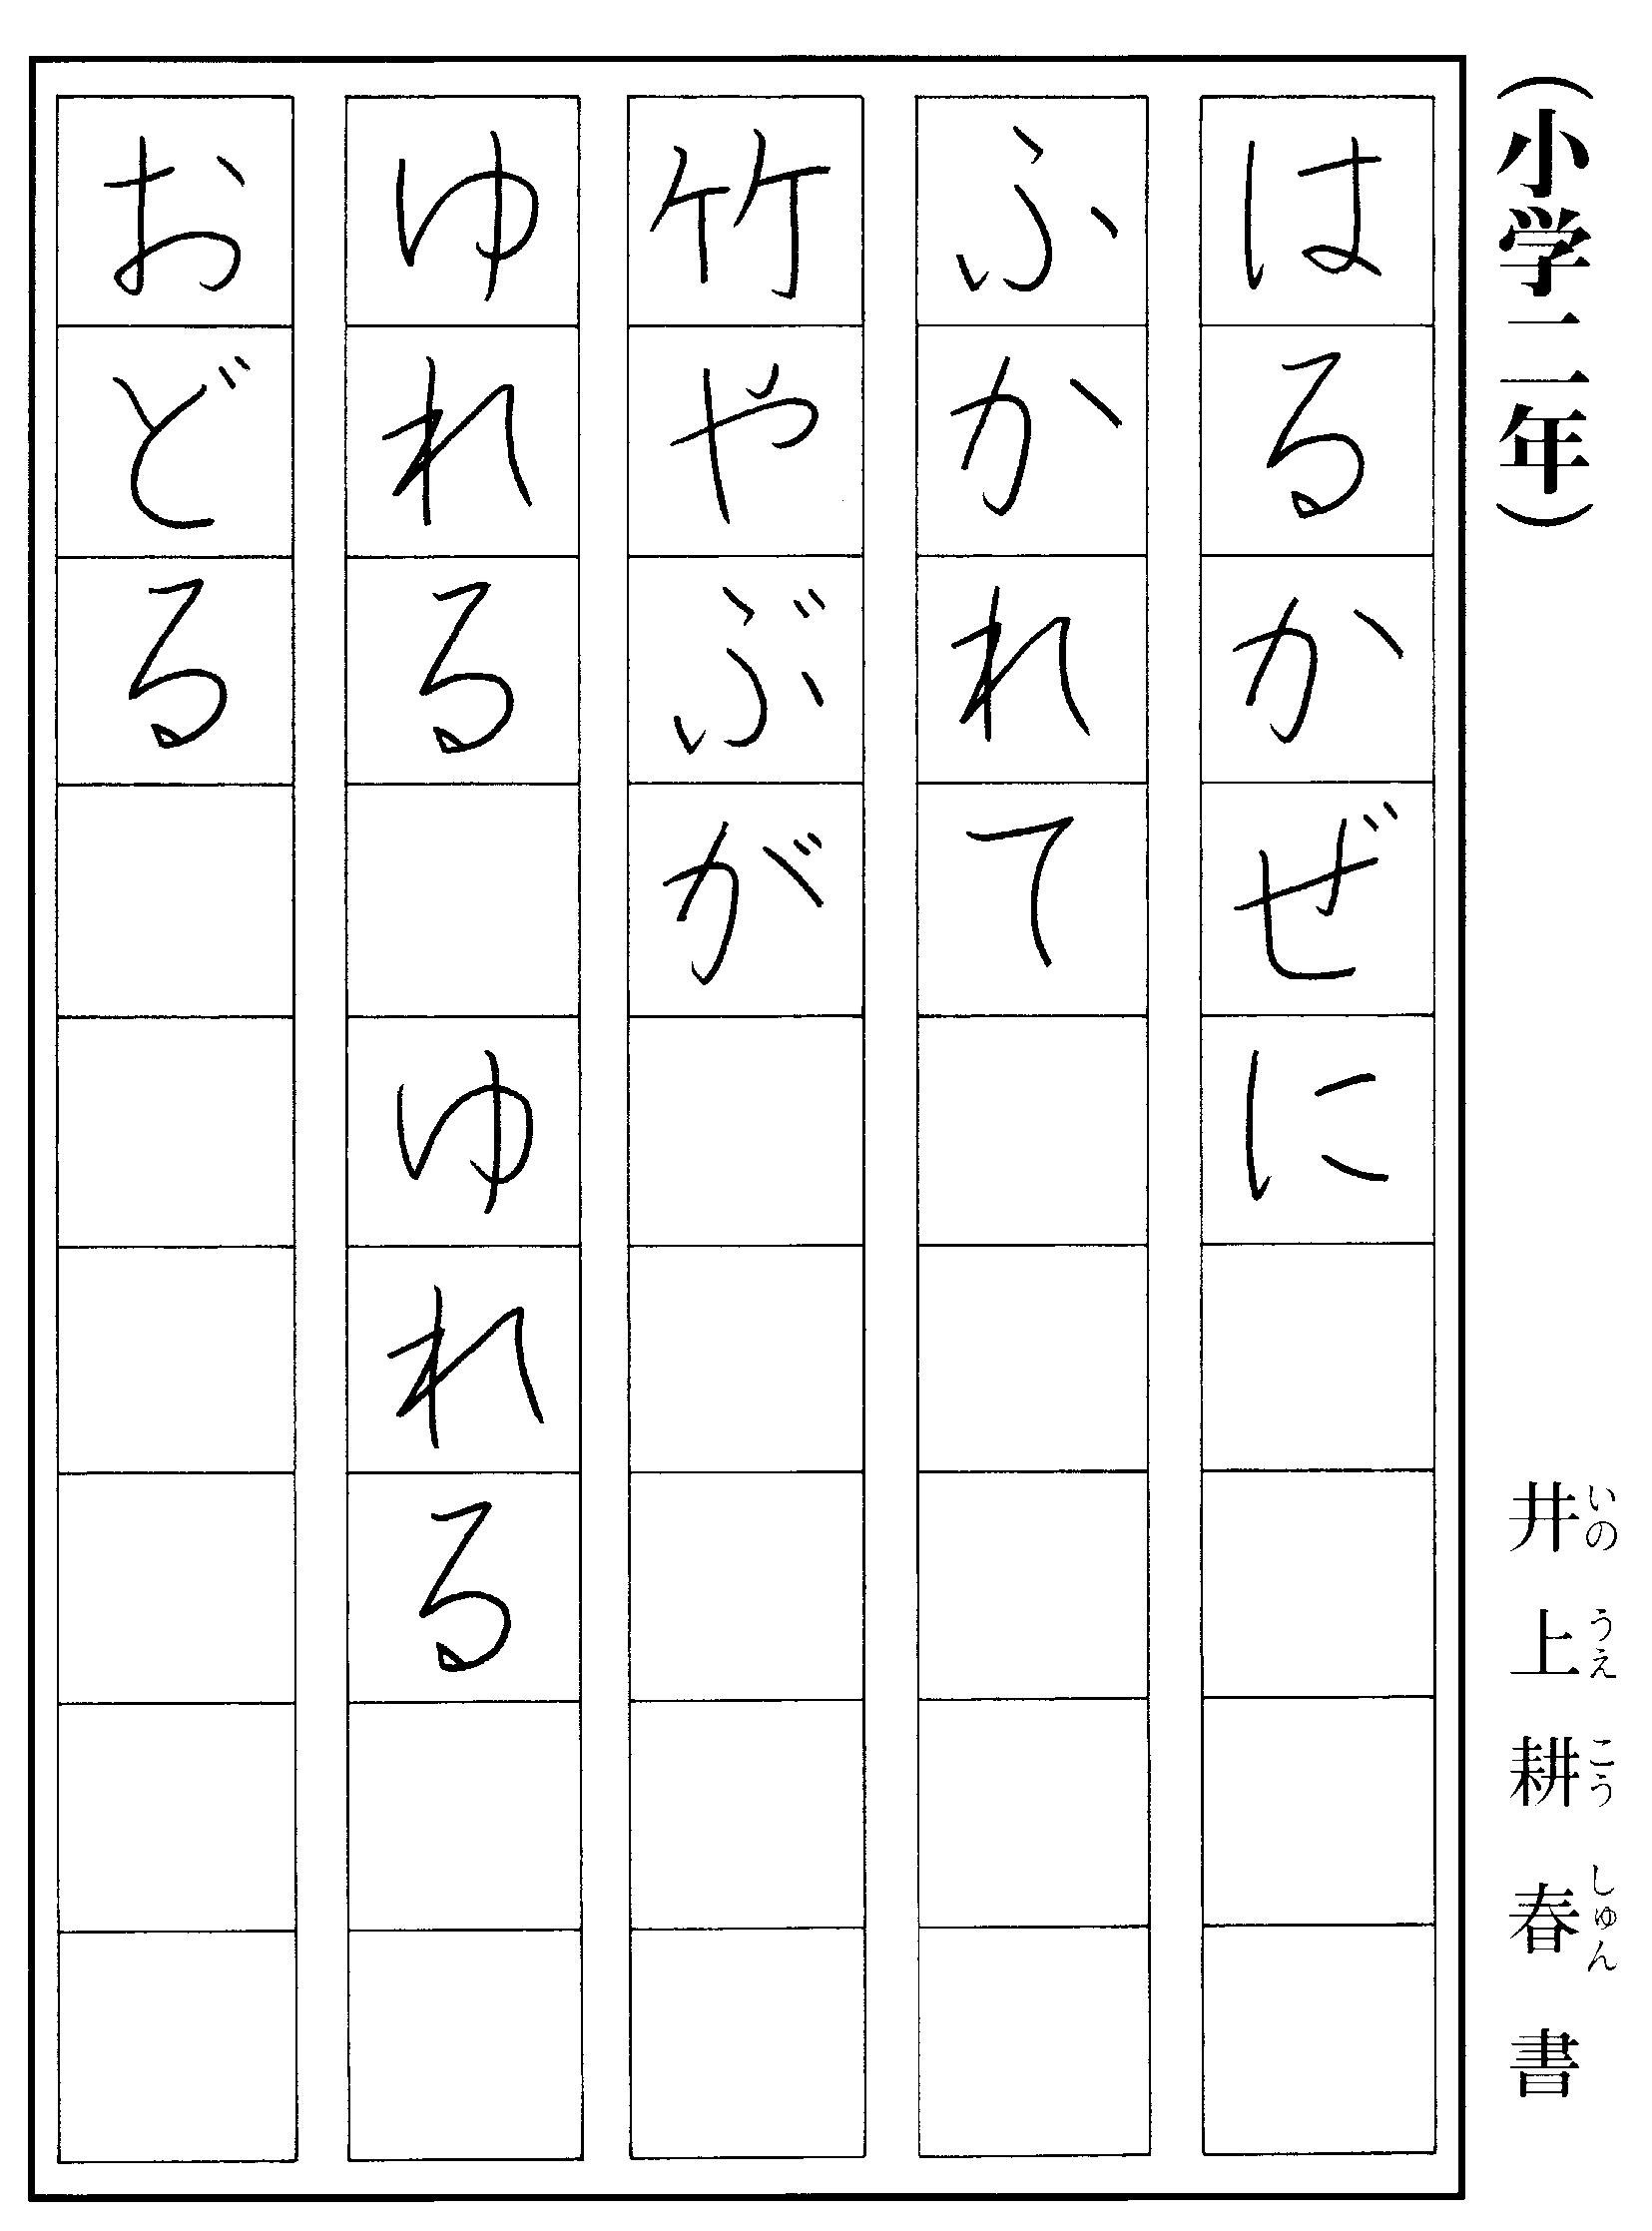 （小学二年）
井上耕春書
いのうえこうしゅん
はるかぜに
ふかれて
竹やぶが
ゆれる　ゆれる
おどる